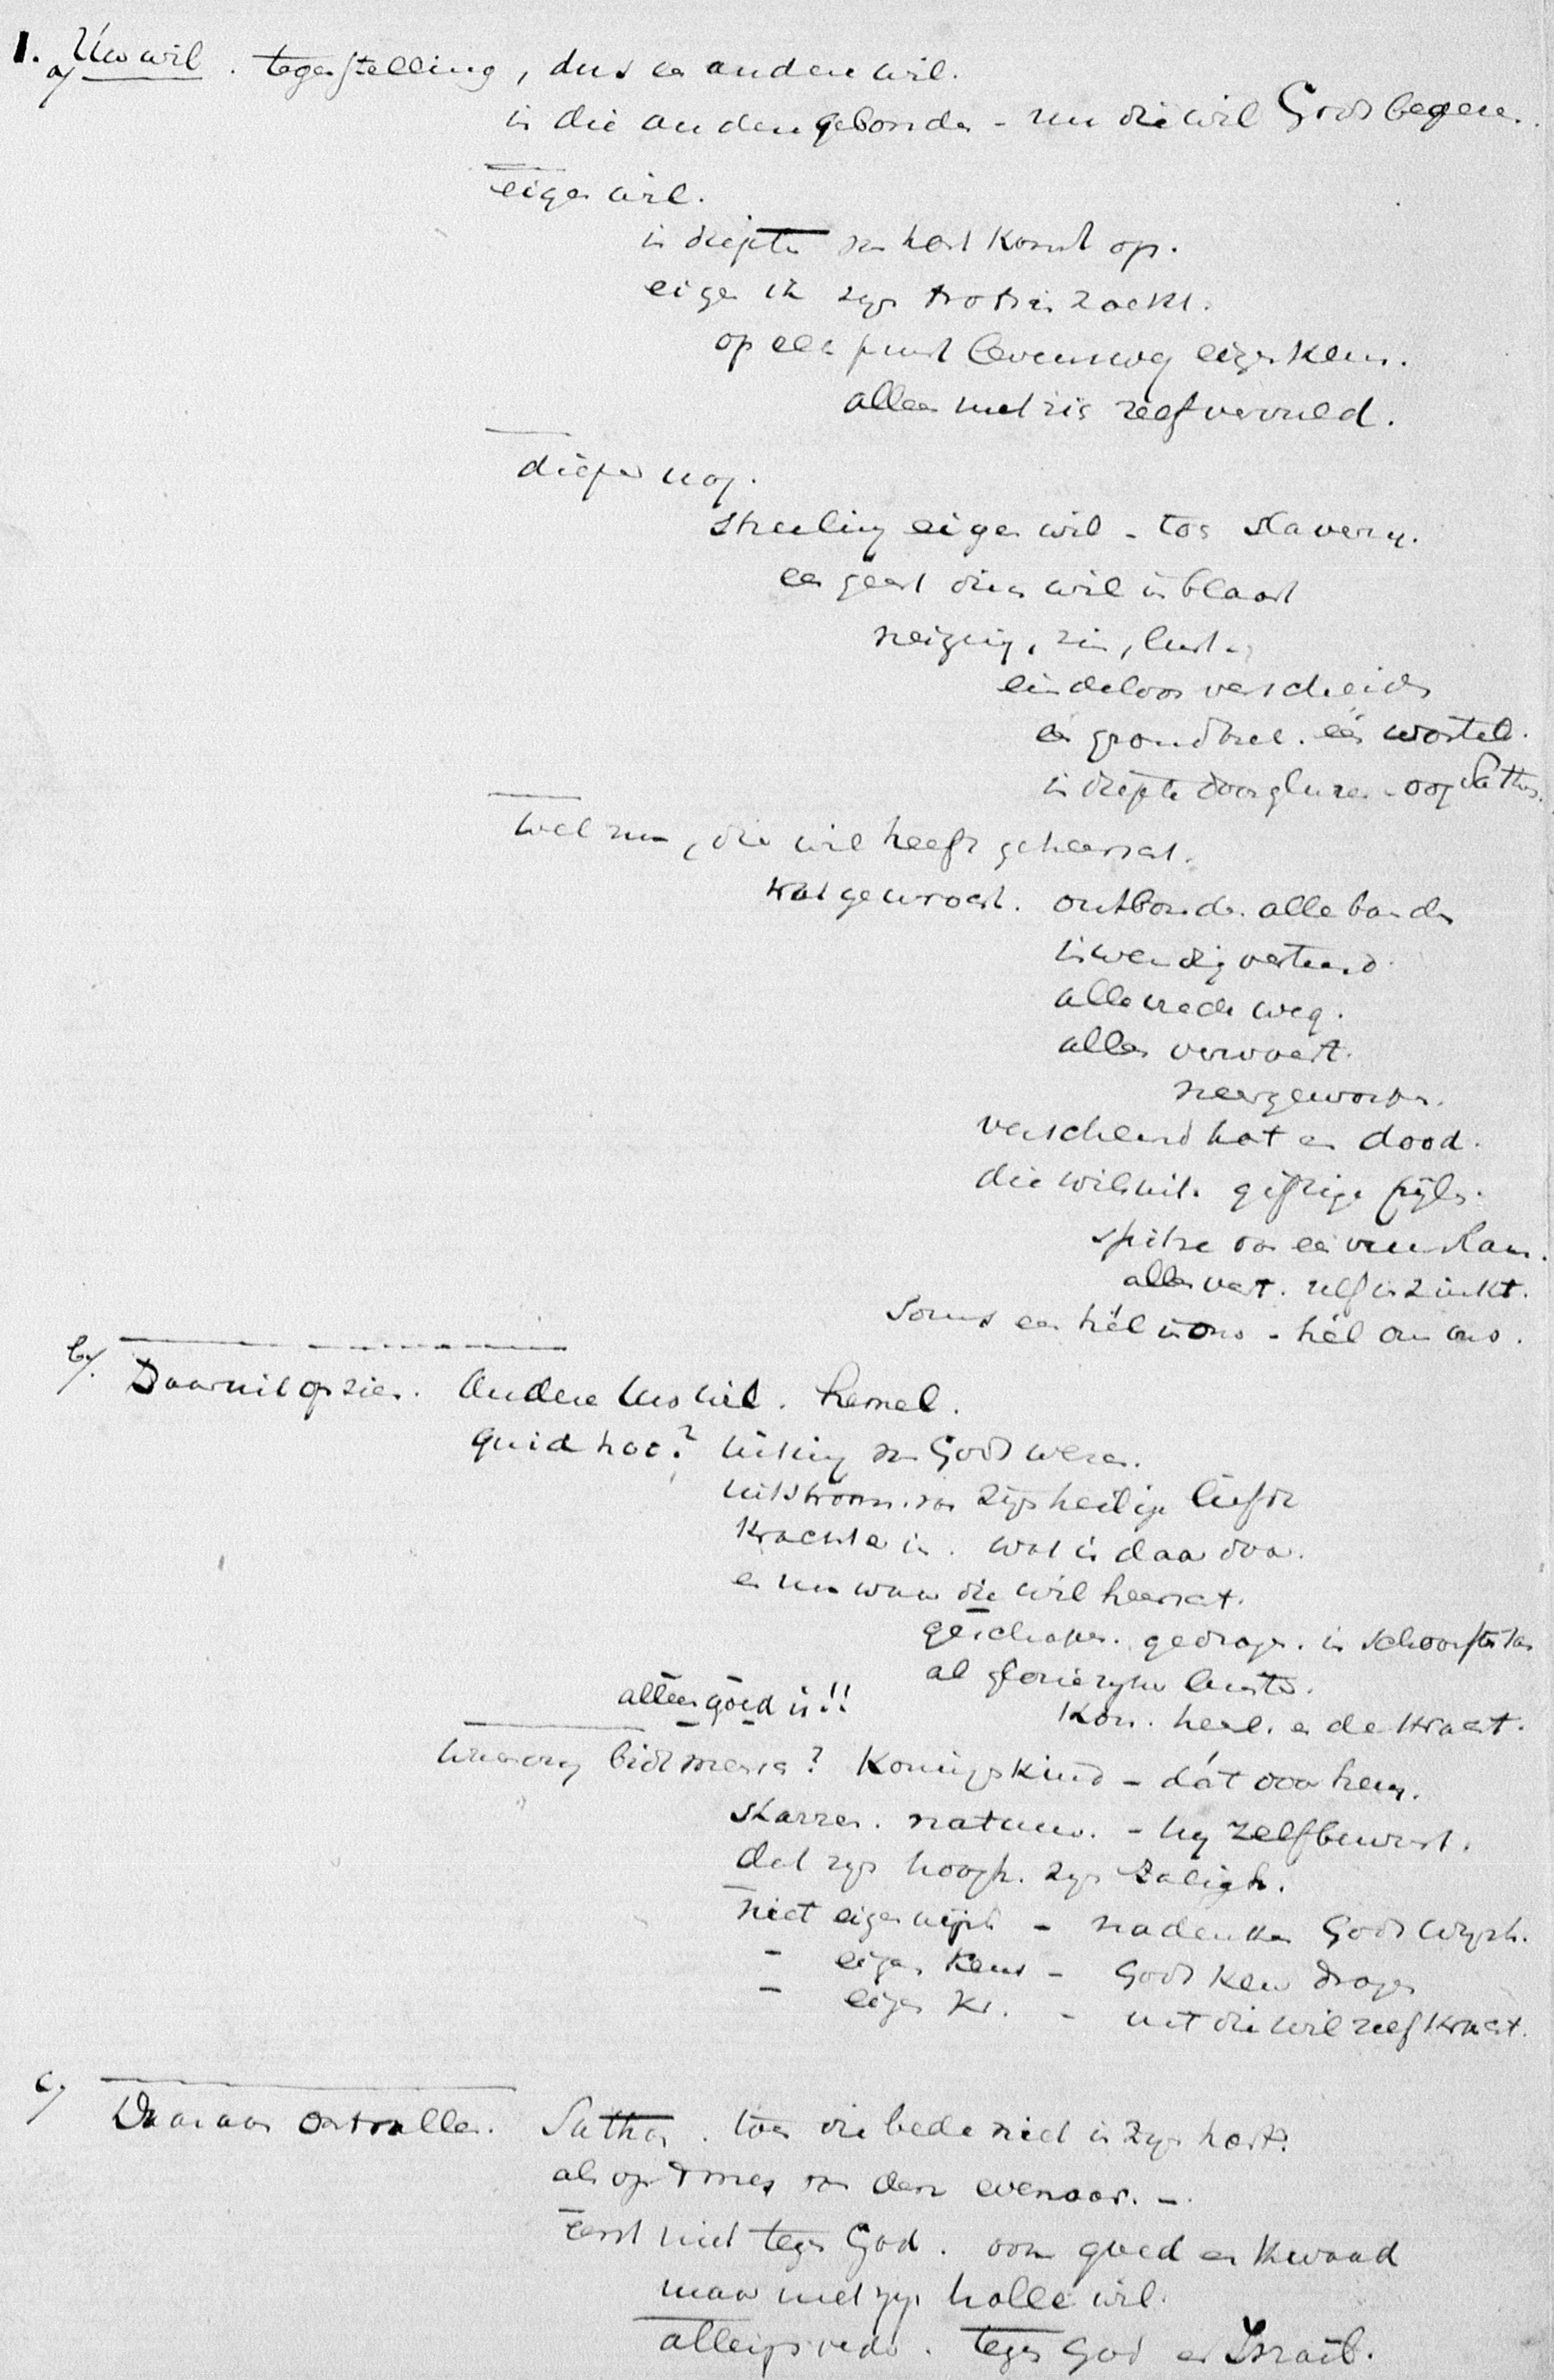 1. a) Uw wil. tegenstelling, dus een andere wil.
in die andere gebonden - nu die wil Gods begeren.
eigen wil.
in diepte van hart komt op.
eigen ik zijn troon zoekt.
op elk punt levensweg eigen keus.
alleen met zich zelf vervuld.
dieper nog.
streeling eigen wil - toch slaverny.
een geest dien wil inblaast
neiging, zin, lust.
eindeloos verscheiden
één grondtrek. één wortel.
in diepte doorgluren - oog Sathan.
Wel nu, die wil heeft geheerscht.
wat gewrocht. ontbonden alle banden
inwendig verteerd.
alle vrede weg.
alles verwoest.
neergeworpen.
verscheurd hart en dood.
die wil uit. giftige pijlen.
spitse van een vuurvlam.
alles vat. zelf in zinkt.
Soms een hèl in ons - hèl om ons.
b). Daaruit opzien. Andere Uw wil. hemel.
quid hoc? uiting van Gods wezen.
uitstroom. van Zijn heilige liefde
Krachten in. wat is daardoor.
en nu waar die wil heerscht.
geschapen. gedragen. in schoonste
al glorierijke luister.
alleen goed is!! Kon. heerl. en de kracht.
waarom bidt mensch? Koningskind - dát voor hem.
starren. natuur. - hij zelfbewust.
dat zijn hoogh. zijn zaligh.
niet eigen wijsh. - nadenken Gods wijsh.
- eigen keus - Gods keus dragen
- eigen kr. - uit die wil zelf kracht.
c) Daaraan ontvallen. Sathan. toen die bede niet in zijn hart.
als op van den evenaar. -
Eerst niet tegen God. voor goed en kwaad
maar met zijn halle wil.
tegen God en Israël.